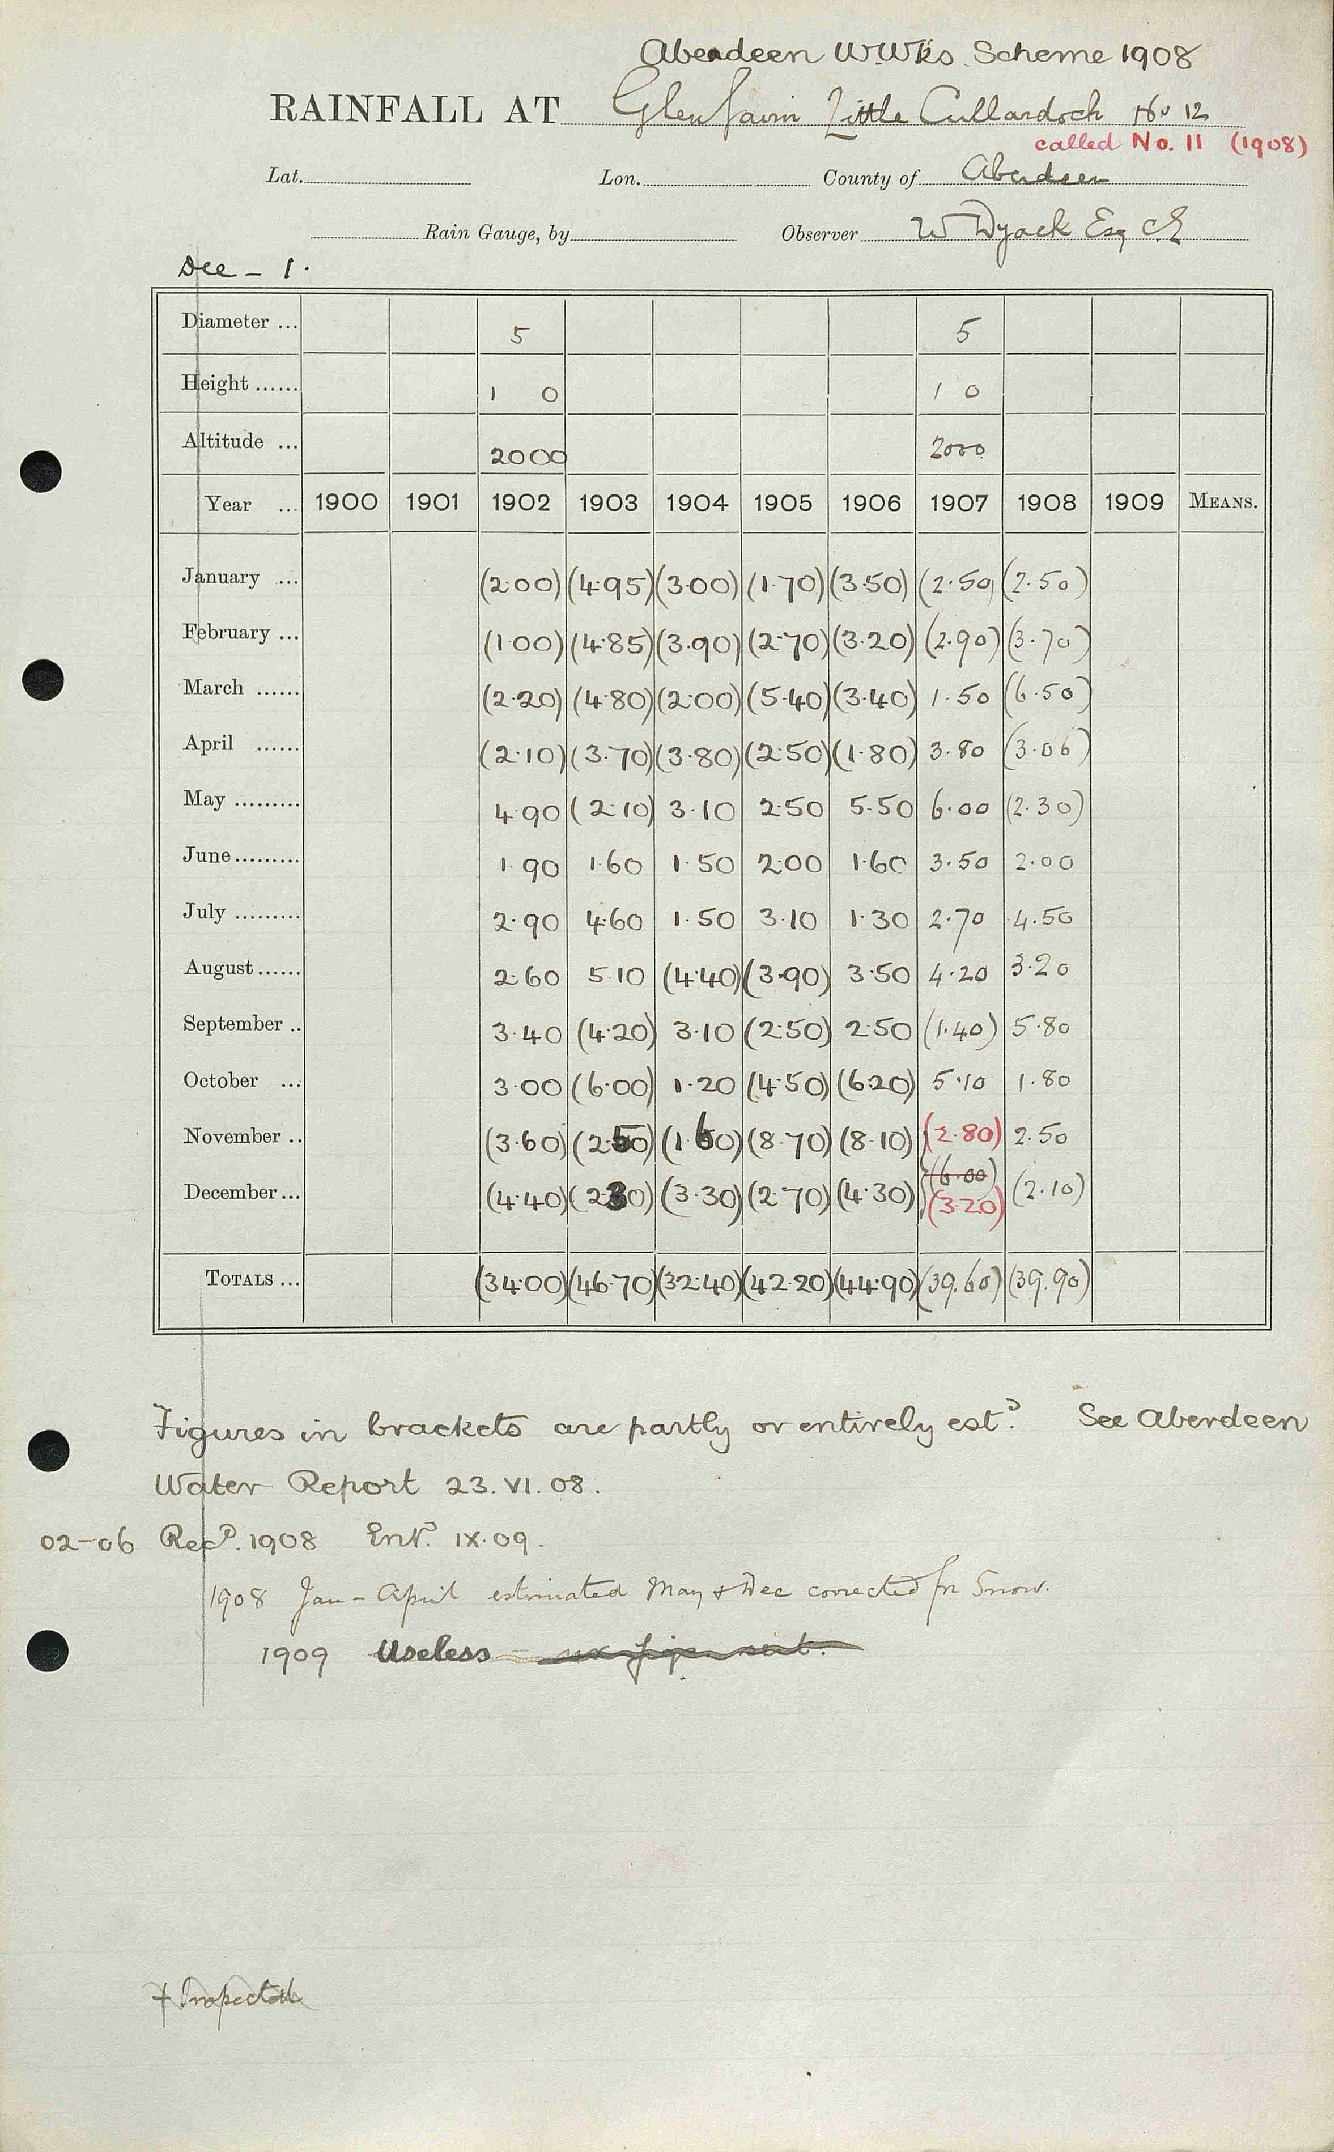 Aberdeen W.Wks. Scheme 1908
RAINFALL AT Glen Gairn Little Cullardoch No 12
called No. 11 (1908)
Lat. Lon. County of Aberdeen
Rain Gauge, by Observer W Dyack Esq CE
Dee - 1.
Diameter ... 5 5
Height ...... 1 0 1 0
Altitude ... 2000 2000
Year ... 1900 1901 1902 1903 1904 1905 1906 1907 1908 1909 MEANS.
January ... (2.00) (4.95) (3.00) (1.70) (3.50) (2.50) (2.50)
February ... (1.00) (4.85) (3.90) (2.70) (3.20) (2.90) (3.70)
March ...... (2.20) (4.80) (2.00) (5.40) (3.40) 1.50 (6.50)
April ...... (2.10) (3.70) (3.80) (2.50) (1.80) 3.80 (3.06)
May ......... 4.90 (2.10) 3.10 2.50 5.50 6.00 (2.30)
June ......... 1.90 1.60 1.50 2.00 1.60 3.50 2.00
July ......... 2.90 4.60 1.50 3.10 1.30 2.70 4.50
August ...... 2.60 5.10 (4.40) (3.90) 3.50 4.20 3.20
September .. 3.40 (4.20) 3.10 (2.50) 2.50 (1.40) 5.80
October ... 3.00 (6.00) 1.20 (4.50) (6.20) 5.10 1.80
November .. (3.60) (2.50) (1.60) (8.70) (8.10) (2.80) 2.50
(6.00)
December ... (4.40) (2.30) (3.30) (2.70) (4.30) (3.20) (2.10)
TOTALS ... (34.00) (46.70) (32.40) (42.20) (44.90) (39.60) (39.90)
Figures in brackets are partly or entirely estd. See Aberdeen
Water Report 23.VI.08.
02-06 Recd. 1908 Entd. IX.09.
1908 Jan - April estimated May & Dec corrected for Snow.
1909 Useless
Inspected